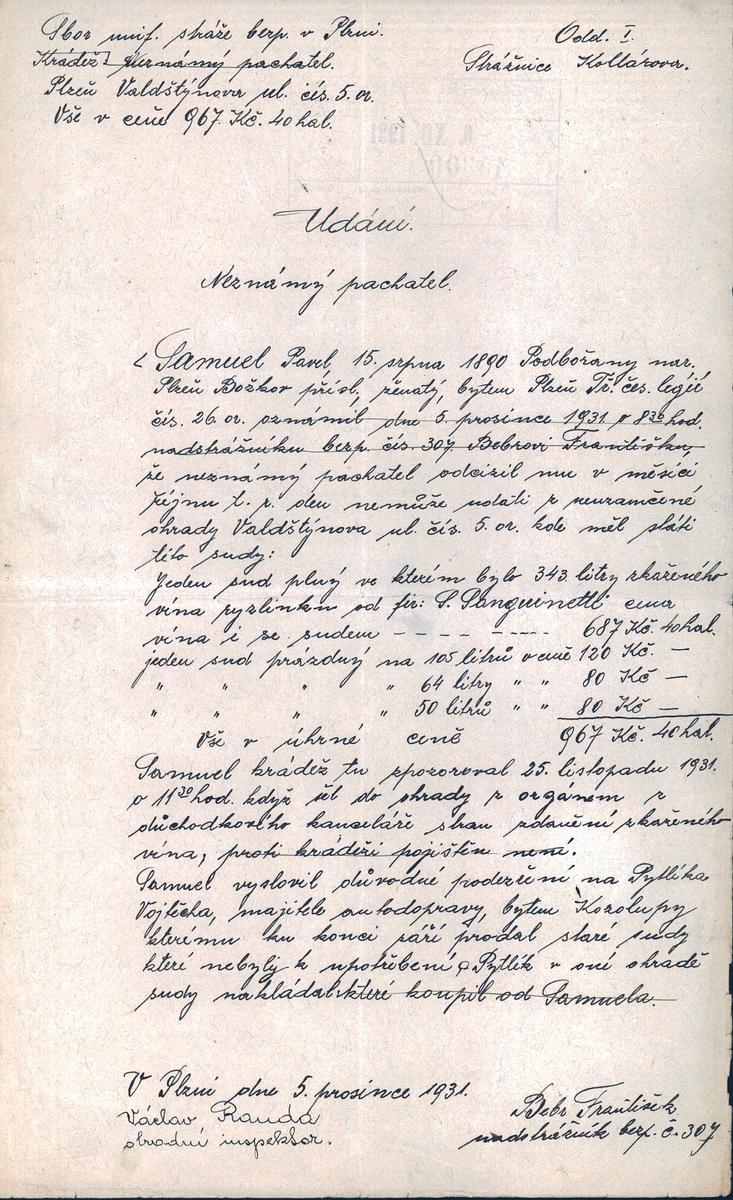 Sbor unif. stráže bezp. v Plzni.
Odd. I.
Krádež: Neznámý pachatel.
Strážnice Kollárova.
Plzeň Valdštýnova ul. čís. 5. or.
Vše v ceně 967. Kč. 40 hal.
Udání.
Neznámý pachatel.
Samuel Pavel, 15. srpna 1890 Podbořany nar.
Plzeň Božkov přísl., ženatý, bytem Plzeň Tř. čes. legií
čís. 26. or. oznámil dne 5. prosince 1931 o 8 30 hod.
nadstrážníku bezp. čís. 307. Bebrovi Františku,
že neznámý pachatel odcizil mu v měsíci
říjnu t. r. den nemůže udati z neuzamčené
ohrady Valdštýnova ul. čís. 5. or. kde měl státi
tito sudy:
Jeden sud plný ve kterém bylo 343. litry zkaženého
vína ryzlinku od fir: S. Sanguinetti cena
vína i se sudem – – – – – – – – 687 Kč. 40 hal.
jeden sud prázdný na 105 litrů v ceně 120 Kč. —
" " " " 64 litry " " 80 Kč —
" " " " 50 litrů " " 80 Kč —
Vše v úhrné ceně 967 Kč. 40 hal.
Samuel krádež tu zpozoroval 25. listopadu 1931.
o 11 30 hod. když šel do ohrady z orgánem z
důchodkového kanceláře stran zdanění zkaženého
vína, proti krádeži pojištěn není.
Samuel vyslovil důvodné podezření na Pytlíka
Vojtěcha, majitele autodopravy, bytem Kozolupy
kterému ku konci září prodal staré sudy
které nebyly k upotřebení a Pytlík v oné ohradě
sudy nakládal které koupil od Samuela.
V Plzni dne 5. prosince 1931.
Václav Randa
obvodní inspektor.
Bebr František
nadstrážník bezp. č. 307